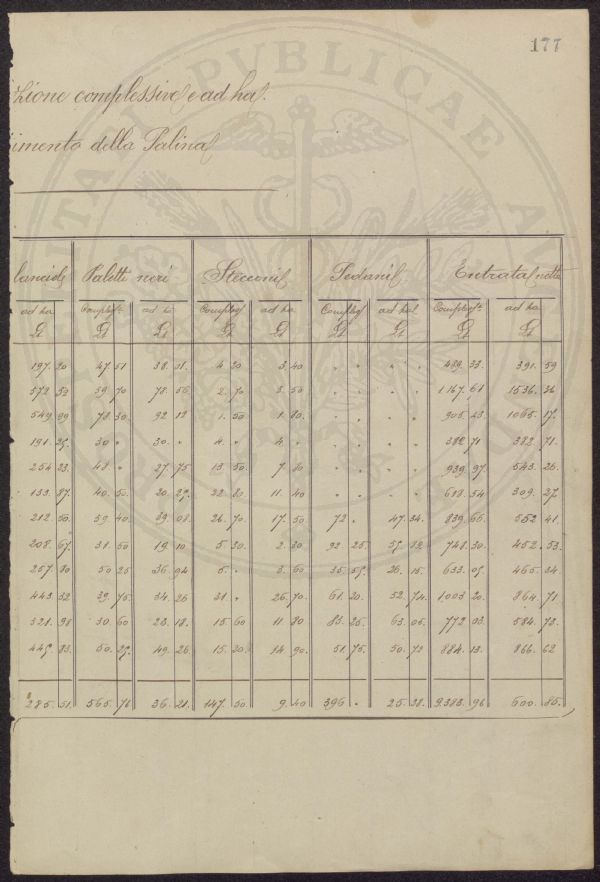 177
zione complessive e ad ha.
imento della Palina
lanciole Paletti neri Stecconi Pedani Entrata netta
ad ha Compless. ad ha Compless. ad ha Compless. ad ha Compless. ad ha
£ £ £ £ £ £ £ £ £
197. 20 47. 51 38. 01. 4. 20 3. 40 " " " " 489. 33. 391. 59
572. 53 59. 70 78. 56 2. 70 3. 50 " " " " 1167. 61 1536. 36
549. 99 78. 30 92 12 1. 50 1. 80. " " " " 905. 23. 1065. 17.
191. 25. 30 " 30. " 4. " 4. " " " " " 382. 71 382. 71.
254 23. 48 " 27. 75 13 50. 7. 80 " " " " 939. 97. 543. 26.
133. 87. 40. 50. 20. 27. 22. 80. 11. 40 " " " " 618. 54 309. 27.
212. 50. 59. 40. 39. 08. 26. 70. 17. 50 72 " 47. 34. 839. 66. 552 41.
208. 67. 31. 50 19. 10 5. 20. 2. 30 92 25. 55. 82. 748. 30. 452. 53.
257. 80 50 25 36. 94 5. " 3. 60 35. 55. 26. 15. 633. 05. 465. 34
443. 32 39. 75. 34. 26 31. " 26. 70. 61. 20. 52. 74. 1003 20. 864. 71
321. 98 30. 60 23. 18. 15. 60 11. 80 83. 25. 63. 05. 772 03. 584. 73.
445. 83. 50. 25. 49. 26. 15. 20 14 90. 51. 75. 50. 73 884. 13. 866. 62
285. 51. 565. 76 36. 21. 147. 50 9. 40 396 " 25. 38. 9383. 96 600. 85.